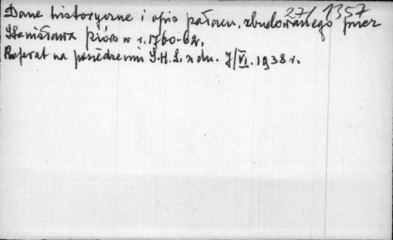 27/1357
Dane historyczne i opis pałacu, zbudowanego przez
Stanisława w r. 1760-62.
Referat na posiedzeniu S.H.S. z dn. 7/VI.1938 r.